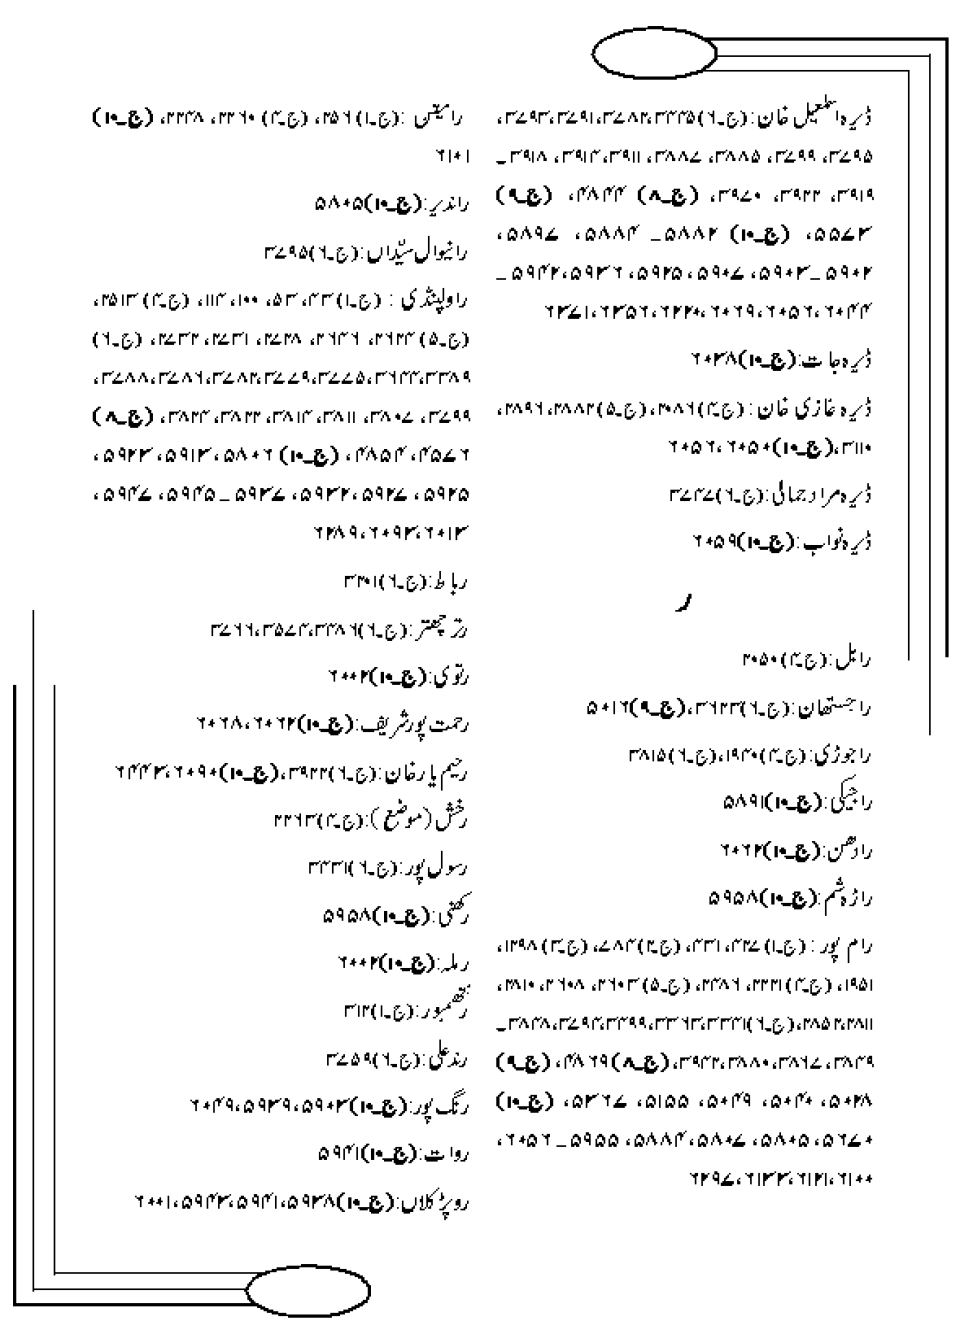 ڈیرہ اسمٰعیل خان:(ج۔۶)۳۳۳۵،۳۷۸۲،۳۷۹۱،۳۷۹۳،
۳۷۹۵، ۳۷۹۹، ۳۸۸۵، ۳۸۸۷، ۳۹۱۱، ۳۹۱۴، ۳۹۱۸۔
۳۹۱۹، ۳۹۲۲، ۳۹۷۰، (ج۔۸) ۴۸۴۴، (ج۔۹)
۵۵۷۳، (ج۔۱۰) ۵۸۸۲۔ ۵۸۸۴، ۵۸۹۷،
۵۹۰۲۔۵۹۰۳، ۵۹۰۷، ۵۹۲۵، ۵۹۳۶،۵۹۴۲۔
۶۰۴۴،۶۰۵۶،۶۰۶۹،۶۲۲۰،۶۳۵۶،۶۳۷۱
ڈیرہ جات:(ج۔۱۰)۶۰۳۸
ڈیرہ غازی خان:(ج۔۴)۲۰۸۶،(ج۔۵)۲۸۸۲،۲۸۹۶،
۳۱۱۰،(ج۔۱۰)۶۰۵۰،۶۰۵۶
ڈیرہ مراد جمالی:(ج۔۶)۳۷۴۷
ڈیرہ نواب:(ج۔۱۰)۶۰۵۹
ر
رابل:(ج۔۴)۲۰۵۰
راجستھان:(ج۔۶)۳۶۲۳،(ج۔۹)۵۰۱۶
راجوڑی:(ج۔۴)۱۹۴۰،(ج۔۶)۳۸۱۵
راجیکی:(ج۔۱۰)۵۸۹۱
رادھن:(ج۔۱۰)۶۰۶۲
راڑہ شم:(ج۔۱۰)۵۹۵۸
رام پور:(ج۔۱)۴۲۷، ۴۳۱، (ج۔۲)۷۸۴، (ج۔۳)۱۲۹۸،
۱۹۵۱، (ج۔۴)۲۲۲۱، ۲۴۸۶، (ج۔۵)۲۶۰۳، ۲۶۰۸، ۲۸۱۰،
۲۸۱۱،۲۸۵۲،(ج۔۶)۳۳۳۱،۳۳۶۳،۳۴۹۹،۳۷۹۴،۳۸۴۸۔
۳۸۴۹،۳۸۶۷،۳۸۸۰،۳۹۴۲،(ج۔۸)۴۸۶۹، (ج۔۹)
۵۰۲۸، ۵۰۴۰، ۵۰۴۹، ۵۱۵۵، ۵۳۶۷، (ج۔۱۰)
۵۶۷۰، ۵۸۰۵، ۵۸۰۷، ۵۸۸۴، ۵۹۵۵۔ ۶۰۵۶،
۶۱۰۰،۶۱۲۱،۶۱۳۳،۶۲۹۷
رامیٹس:(ج۔۱)۲۵۶، (ج۔۴)۲۲۶۰، ۲۲۴۸، (ج۔۱۰)
۶۱۰۱
راندیر:(ج۔۱۰)۵۸۰۵
رانیوال سیّداں:(ج۔۶)۳۷۹۵
راولپنڈی:(ج۔۱)۴۳، ۵۳، ۱۰۰، ۱۱۴، (ج۔۴)۲۵۱۳،
(ج۔۵)۲۶۲۴، ۲۶۴۶، ۲۷۲۸، ۲۷۳۱، ۲۷۳۲، (ج۔۶)
۳۳۸۹،۳۶۴۴،۳۷۷۵،۳۷۷۹،۳۷۸۲،۳۷۸۶،۳۷۸۸،
۳۷۹۹، ۳۸۰۷، ۳۸۱۱، ۳۸۱۴، ۳۸۲۲، ۳۸۲۴، (ج۔۸)
۴۵۷۶، ۴۸۵۴، (ج۔۱۰) ۵۸۰۶، ۵۹۱۳، ۵۹۲۳،
۵۹۲۵، ۵۹۲۷، ۵۹۳۲، ۵۹۳۷۔ ۵۹۴۵، ۵۹۴۷،
۶۰۱۳،۶۰۹۳،۶۲۸۹
رباط:(ج۔۶)۳۳۰۱
رتڑ چھتر:(ج۔۶)۳۴۸۶،۳۵۷۴،۳۷۶۶
رتوی:(ج۔۱۰)۶۰۰۲
رحمت پور شریف:(ج۔۱۰)۶۰۶۲،۶۰۶۸
رحیم یار خان:(ج۔۶)۳۹۲۲،(ج۔۱۰)۶۰۹۰،۶۴۴۳
رخش(موضع):(ج۔۴)۲۲۶۳
رسول پور:(ج۔۶)۳۴۳۱
رکھنی:(ج۔۱۰)۵۹۵۸
رملہ:(ج۔۱۰)۶۰۰۲
رنتھمبور:(ج۔۱)۳۱۲
رند علی:(ج۔۶)۳۷۵۹
رنگ پور:(ج۔۱۰)۵۹۰۳،۵۹۳۹،۶۰۴۹
روات:(ج۔۱۰)۵۹۴۱
روپڑ کلاں:(ج۔۱۰)۵۹۳۸،۵۹۴۱،۵۹۴۳،۶۰۰۱